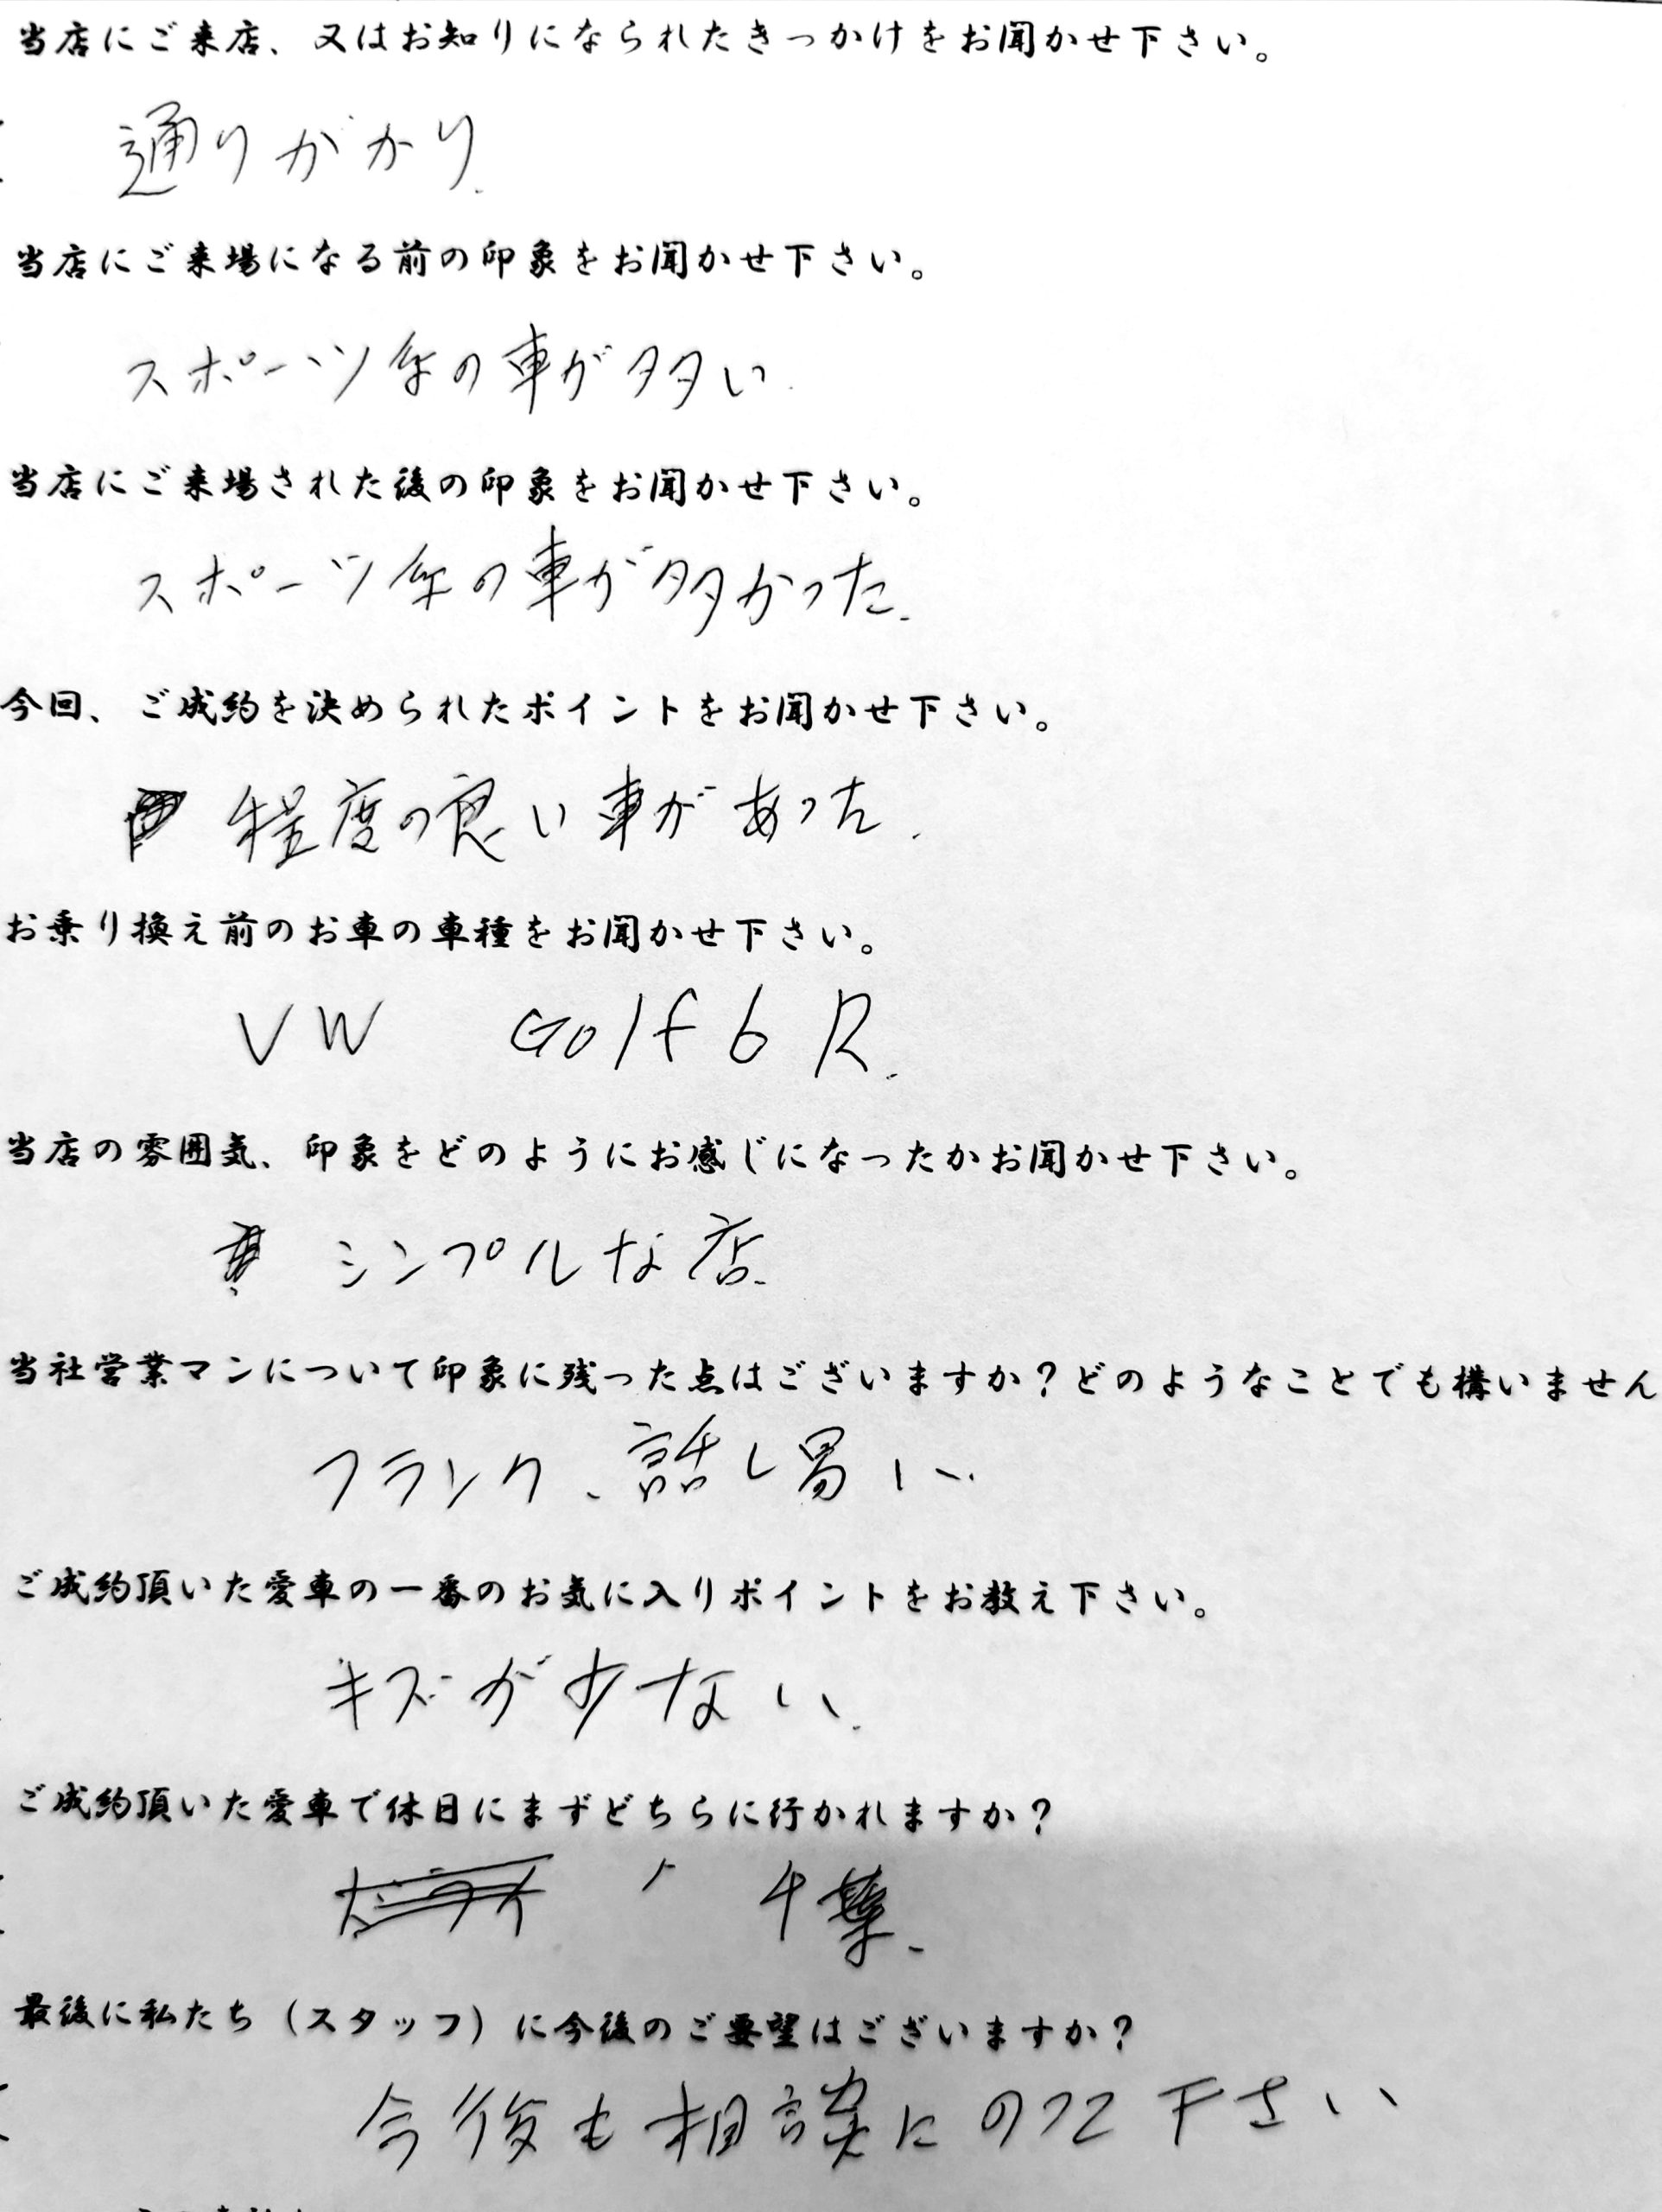 当店にご来店、又はお知りになられたきっかけをお聞かせ下さい。
通りがかり.
当店にご来場になる前の印象をお聞かせ下さい。
スポーツ系の車が多い.
当店にご来場された後の印象をお聞かせ下さい。
スポーツ系の車が多かった.
今回、ご成約を決められたポイントをお聞かせ下さい。
程度の良い車があった.
お乗り換え前のお車の車種をお聞かせ下さい。
VW Golf 6 R.
当店の雰囲気、印象をどのようにお感じになったかお聞かせ下さい。
シンプルな店.
当社営業マンについて印象に残った点はございますか?どのようなことでも構いません
フランク、話し易い.
ご成約頂いた愛車の一番のお気に入りポイントをお教え下さい。
キズが少ない.
ご成約頂いた愛車で休日にまずどちらに行かれますか?
千葉.
最後に私たち(スタッフ)に今後のご要望はございますか?
今後も相談にのって下さい